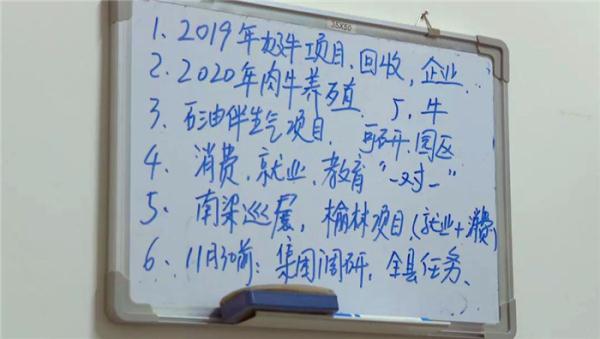 35X50
1、2019年投牛项目、回收，企业
2、2020年肉牛养殖、5，牛
3、石油伴生气项目、可研、园区
4、消费、就业、教育“一对一”
5、南梁巡展，榆林项目（就业+消费）
6、11月30前：集团调研，全县任务、